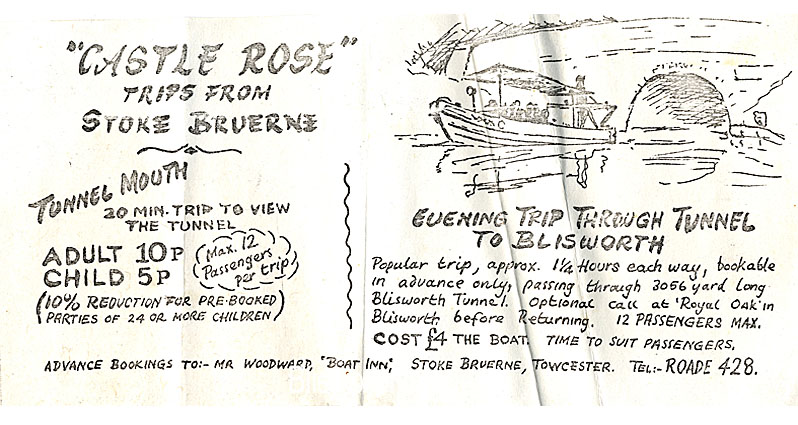 "CASTLE ROSE"
TRIPS FROM
STOKE BRUERNE
TUNNEL MOUTH
20 MIN. TRIP TO VIEW
THE TUNNEL
ADULT 10P
CHILD 5P
(Max. 12
Passengers
per trip)
(10% REDUCTION FOR PRE-BOOKED
PARTIES OF 24 OR MORE CHILDREN)
EVENING TRIP THROUGH TUNNEL
TO BLISWORTH
Popular trip, approx. 1¼ Hours each way, bookable
in advance only, passing through 3056 yard long
Blisworth Tunnel. Optional call at 'Royal Oak' in
Blisworth before Returning. 12 PASSENGERS MAX.
COST £4 THE BOAT. TIME TO SUIT PASSENGERS.
ADVANCE BOOKINGS TO:- MR WOODWARD, "BOAT INN", STOKE BRUERNE, TOWCESTER. TEL:- ROADE 428.